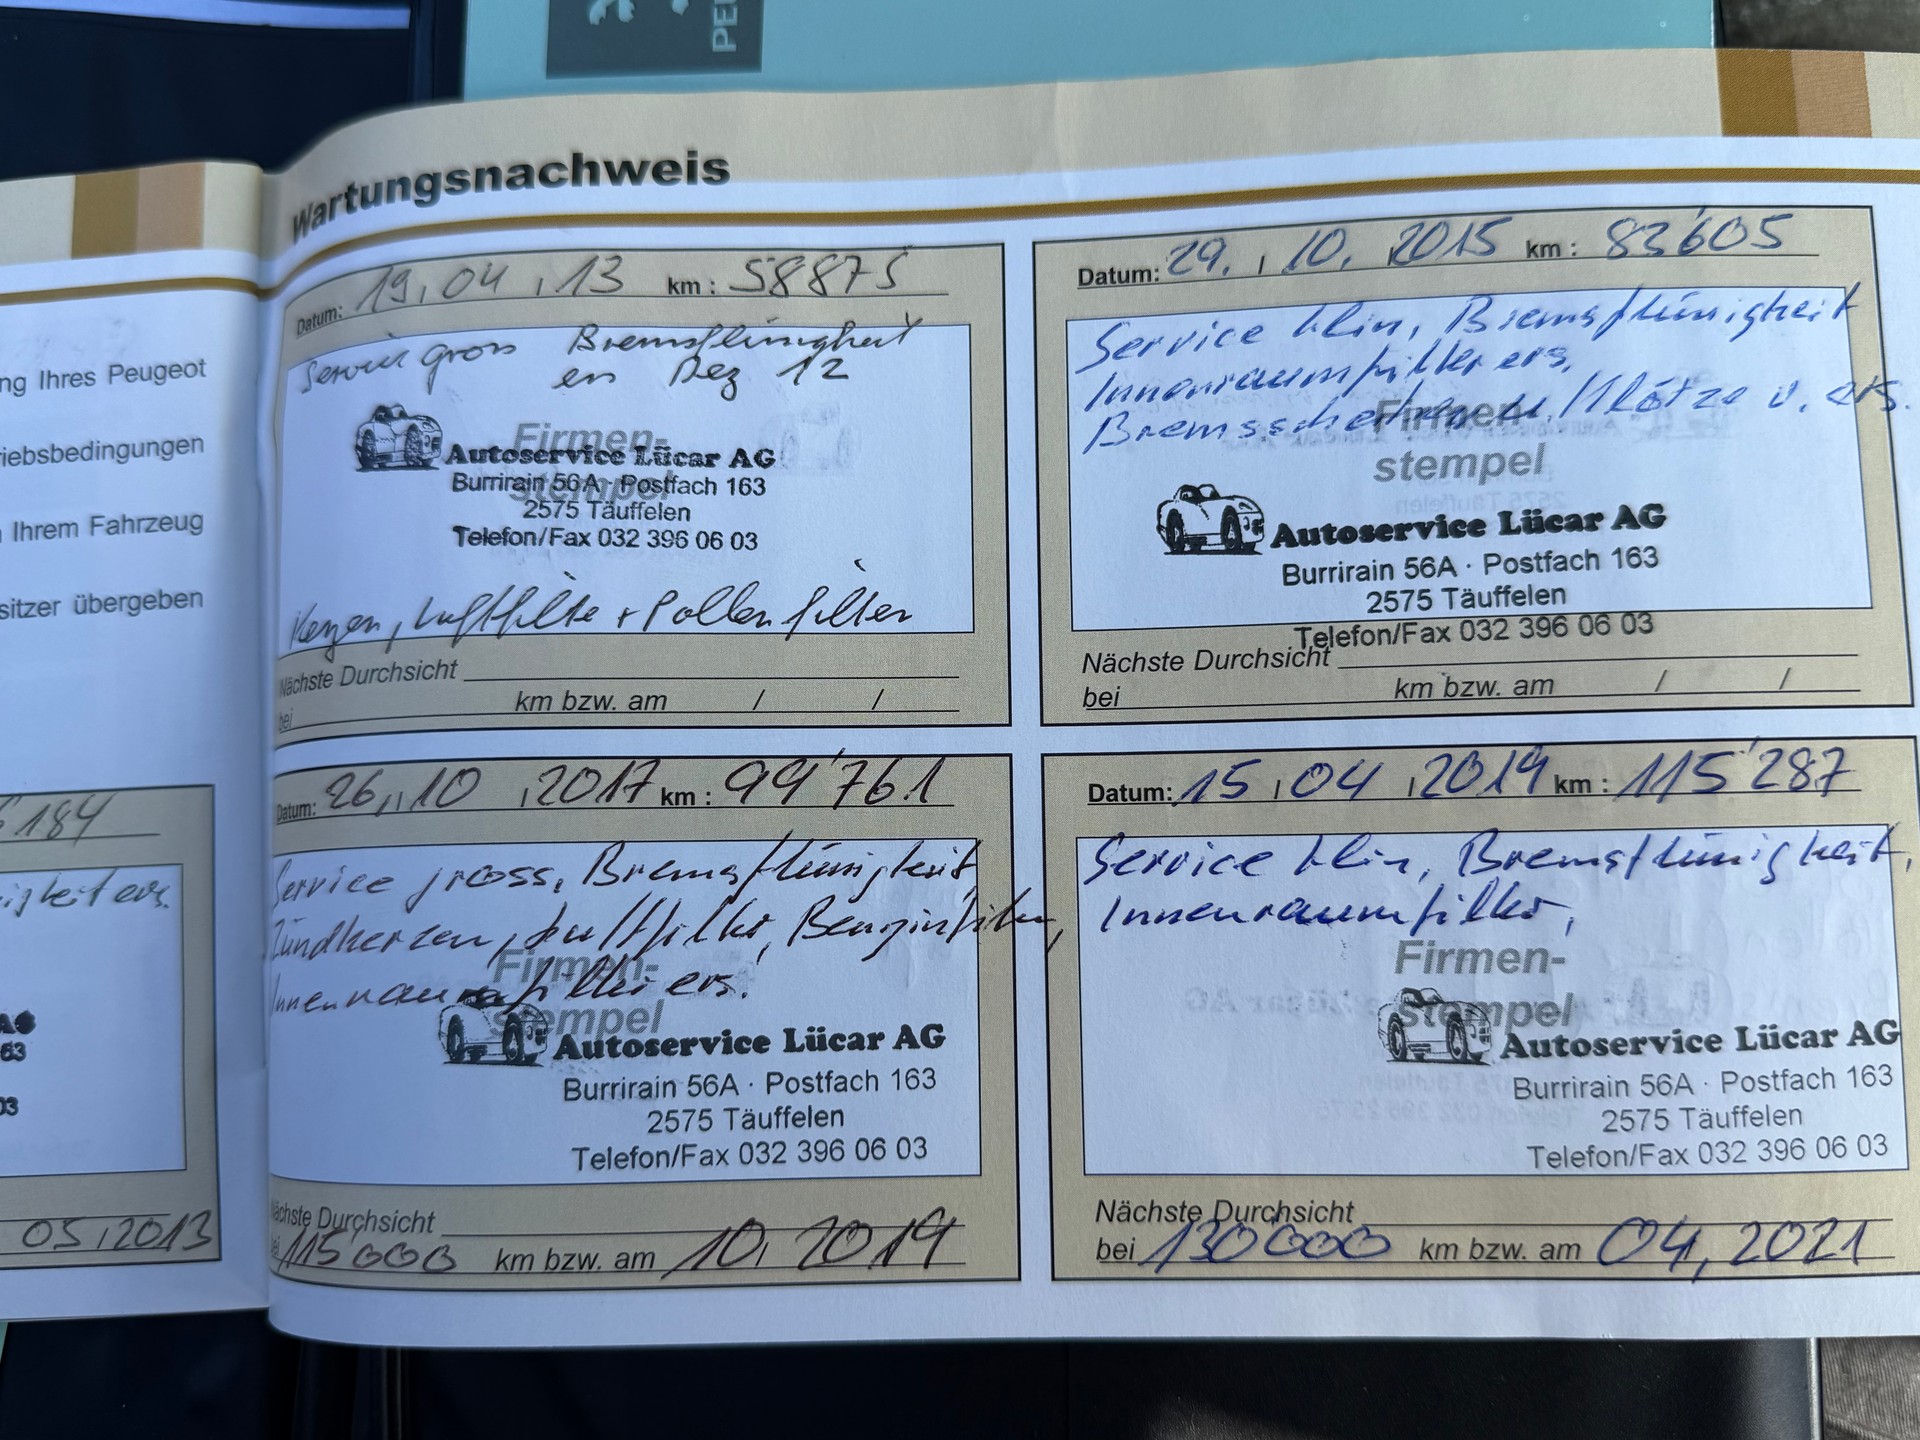 PEU
ng Ihres Peugeot
riebsbedingungen
Ihrem Fahrzeug
sitzer übergeben
184
igkeit ers.
AG
63
03
05,2013
Wartungsnachweis
Datum: 19,04,13 km: 58875
Service gross Bremsflüssigkeit
en Dez 12
Firmen-
stempel
Autoservice Lücar AG
Burrirain 56A · Postfach 163
2575 Täuffelen
Telefon/Fax 032 396 06 03
Kerzen, Luftfilter + Pollenfilter
Nächste Durchsicht
bei km bzw. am / /
Datum: 29., 10., 2015 km: 83'605
Service klin, Bremsflüssigkeit
Innenraumfilter ers,
Bremsscheiben u. Klötze v. ers.
Firmen-
stempel
Autoservice Lücar AG
Burrirain 56A · Postfach 163
2575 Täuffelen
Telefon/Fax 032 396 06 03
Nächste Durchsicht
bei km bzw. am / /
Datum: 26,10,2017 km: 99'761
Service gross, Bremsflüssigkeit,
Zündkerzen, Luftfilter, Benzinfilter,
Innenraumfilter ers.
Firmen-
stempel
Autoservice Lücar AG
Burrirain 56A · Postfach 163
2575 Täuffelen
Telefon/Fax 032 396 06 03
Nächste Durchsicht
bei 115000 km bzw. am 10, 2019
Datum: 15,04,2019 km: 115'287
Service klin, Bremsflüssigkeit,
Innenraumfilter,
Firmen-
stempel
Autoservice Lücar AG
Burrirain 56A · Postfach 163
2575 Täuffelen
Telefon/Fax 032 396 06 03
Nächste Durchsicht
bei 130'000 km bzw. am 04, 2021